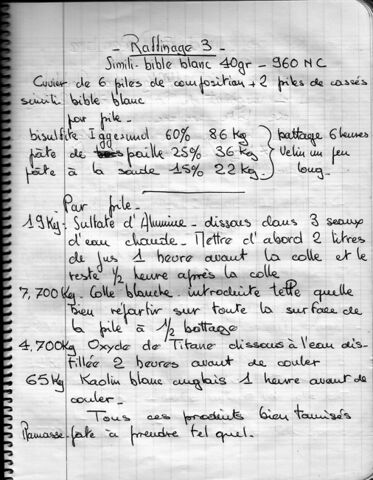 - Raffinage 3 -
Simili-bible blanc 40gr - 960 NC
Cuvier de 6 piles de composition + 2 piles de cassés
simili bible blanc
pour pile -
bisulfite Iggesund 60% 86 Kg
pâte de paille 25% 36 Kg
pâte à la soude 15% 22 Kg
battage 6 heures
Velin un peu
long.
Par pile -
19 Kg. Sulfate d'Alumine - dissous dans 3 seaux
d'eau chaude. Mettre d'abord 2 litres
de jus 1 heure avant la colle et le
reste 1/2 heure après la colle
7,700 Kg. Colle blanche introduite telle quelle
bien répartir sur toute la surface de
la pile à 1/2 battage
4,700 Kg Oxyde de Titane dissous à l'eau dis-
tillée 2 heures avant de couler
65 Kg Kaolin blanc anglais 1 heure avant de
couler -
Tous ces produits bien tamisés
Ramasse-pâte à prendre tel quel.